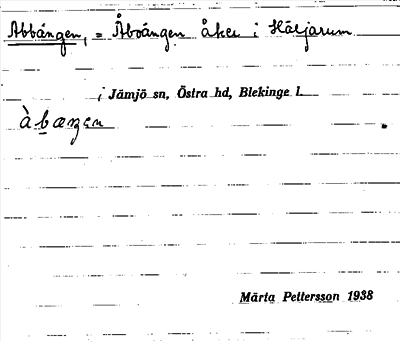 Abbängen, = Åboängen åker i Häljarum
i Jämjö sn, Östra hd, Blekinge l.
àbæŋen
Märta Pettersson 1938